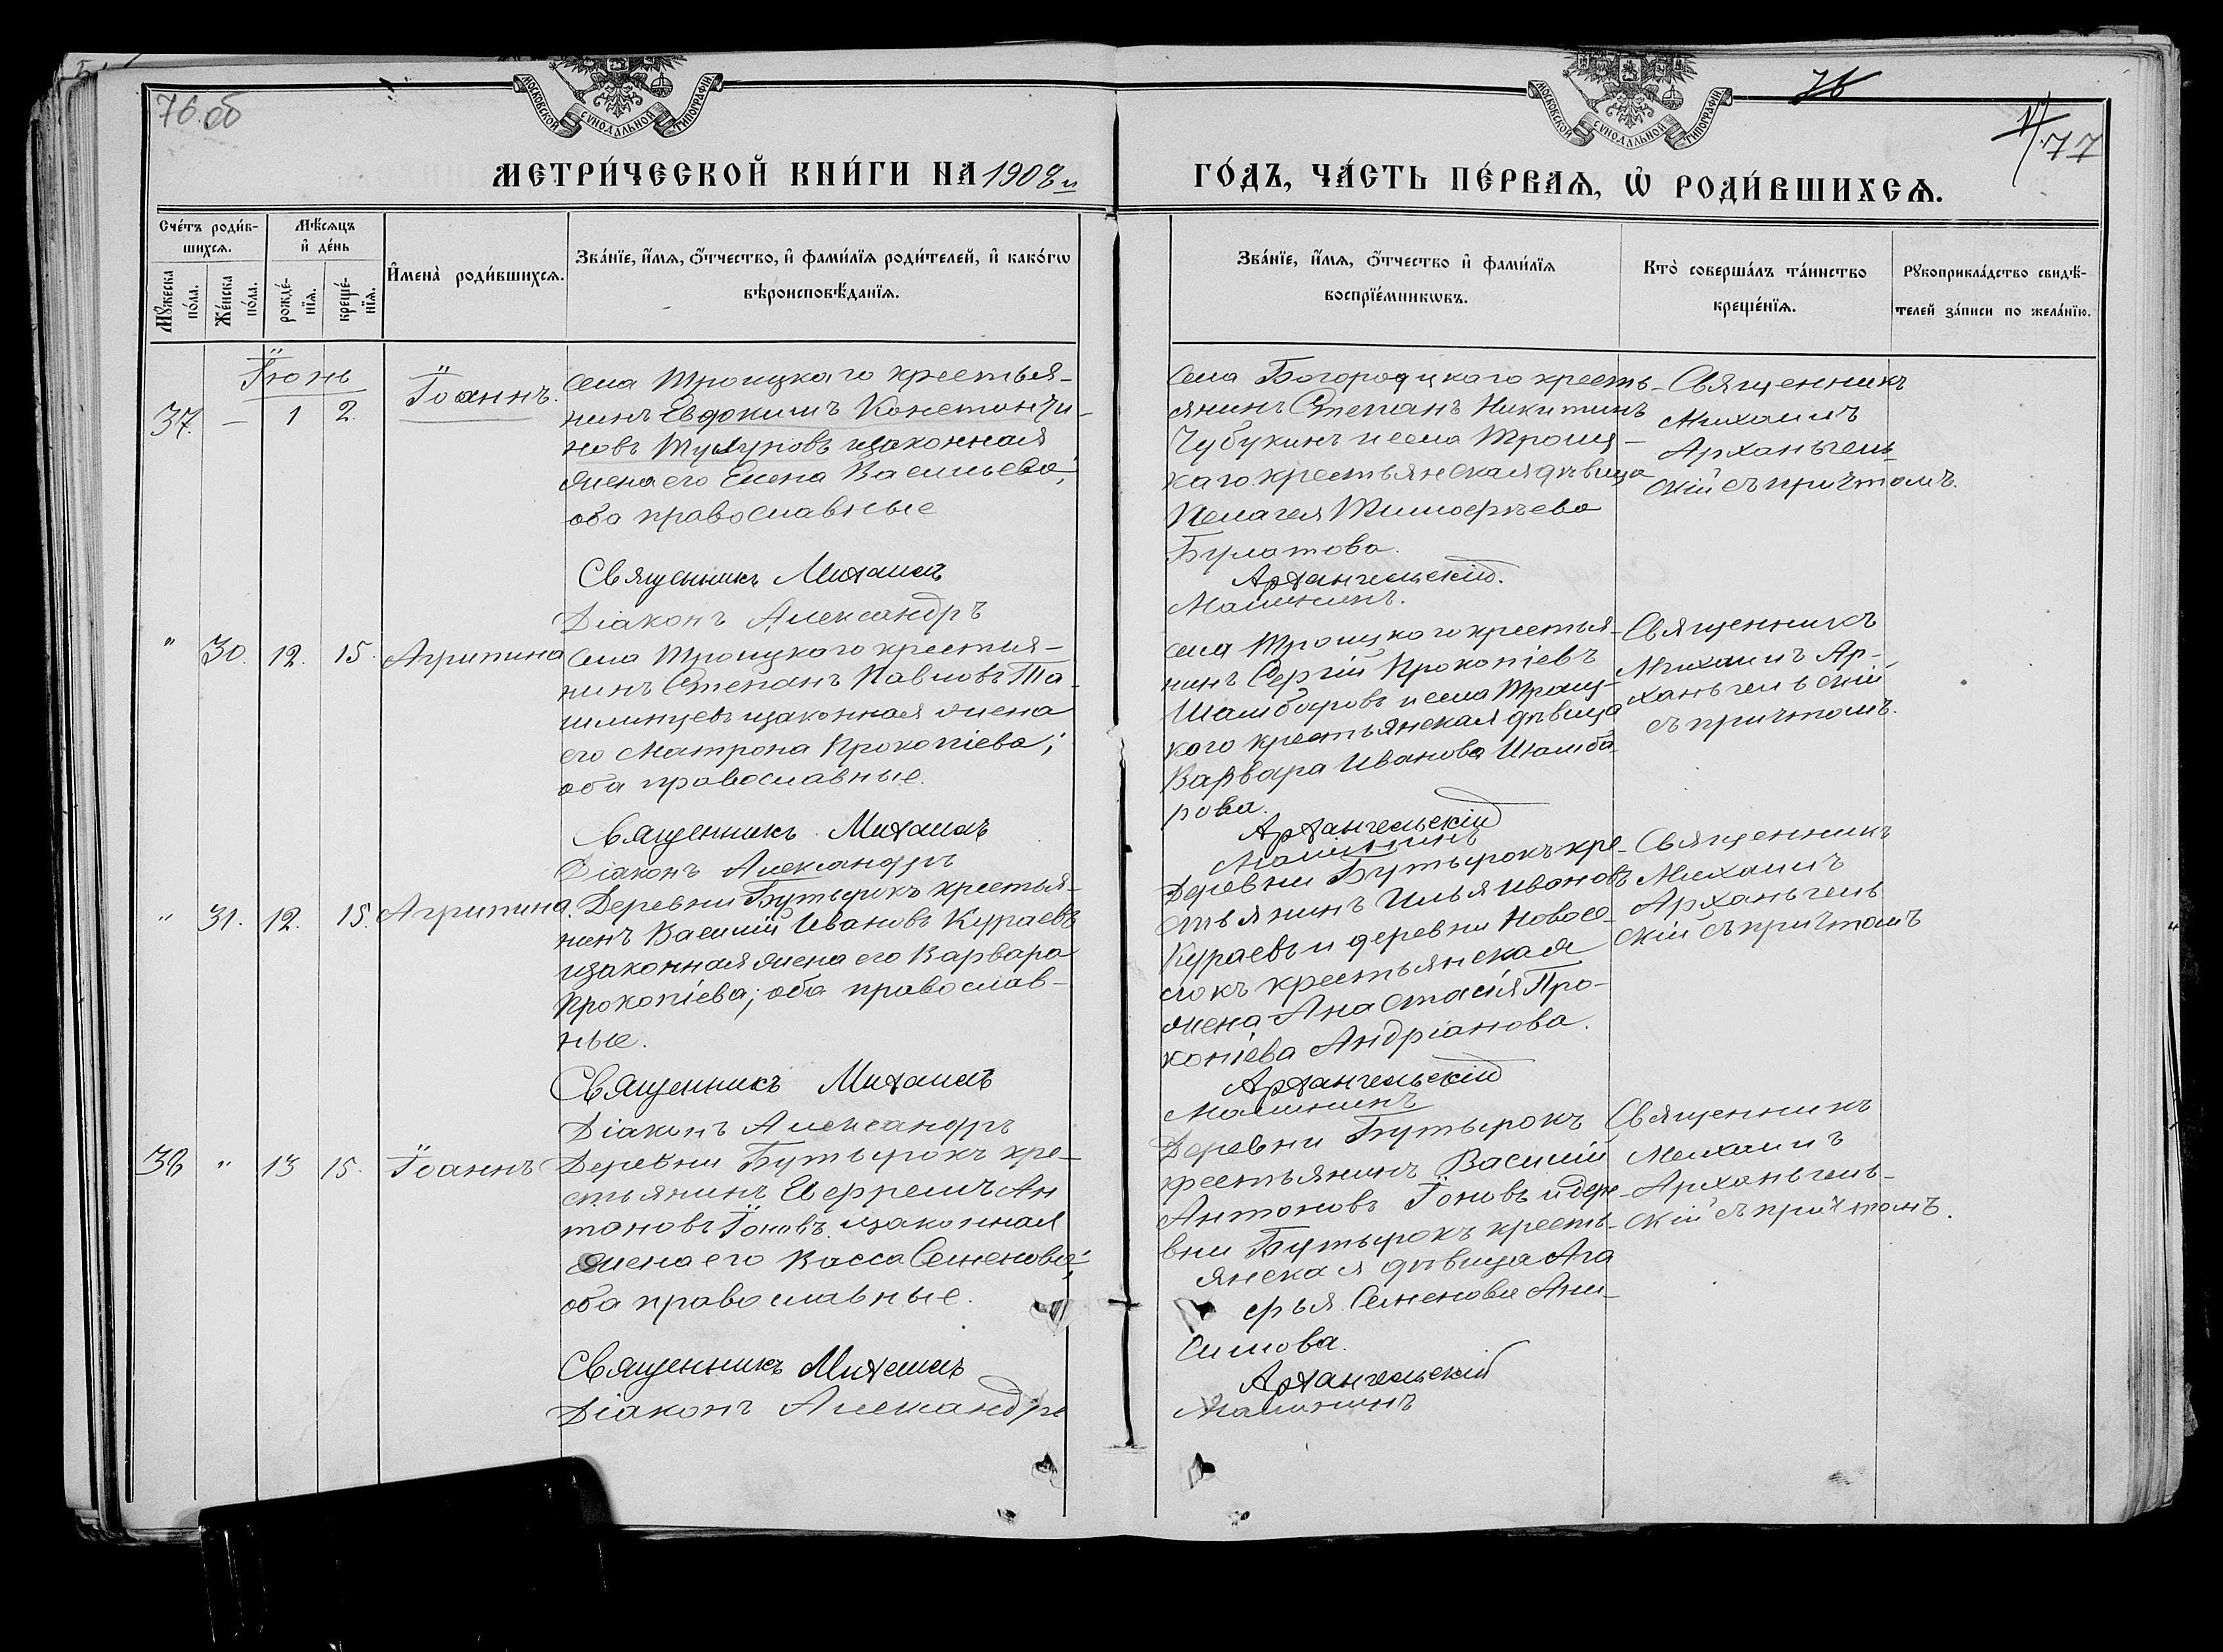 76 об
76
77
МОСКОВСКОЙ СѴНОДАЛЬНОЙ ТИПОГРАФІИ
МОСКОВСКОЙ СѴНОДАЛЬНОЙ ТИПОГРАФІИ
МЕТРИ́ЧЕСКОЙ КНИ́ГИ НА 1908 й
ГО́ДЪ, ЧА́СТЬ ПЕ́РВАѦ, Ѽ РОДИ́ВШИХСѦ.
Сче́тъ роди́в-
шихсѧ.
Мꙋ́жеска по́ла.
Же́нска по́ла.
Мѣ́сѧцъ
и҆ де́нь
рожде́-
нїѧ.
креще́-
нїѧ.
И҆мена̀ роди́вшихсѧ.
Зва́нїе, и҆́мѧ, ѻ҆́тчество, и҆ фами́лїѧ роди́телей, и҆ како́гѡ
вѣроисповѣ́данїѧ.
Зва́нїе, и҆́мѧ, ѻ҆́тчество и҆ фами́лїѧ
воспрїе́мникѡвъ.
Кто̀ соверша́лъ та́инство
креще́нїѧ.
Рꙋкоприкла́дство свидѣ́-
телей за́писи по жела́нїю.
Іюнь
37. — 1 2. Іоаннъ.
Села Троицкаго крестья-
нинъ Евдокимъ Константи-
новъ Тулуповъ изаконная
жена его Елена Васильева;
оба православные
Священникъ Михаилъ
Діаконъ Александръ
Села Богородцкаго кресть-
янинъ Степанъ Никитинъ
Чубукинъ и села Троиц-
каго крестьянская дѣвица
Пелагея Тимофѣева
Булатова.
Архангельскій.
Малининъ.
Священникъ
Михаилъ
Архангель
скій съ причтомъ.
" 30. 12. 15. Агрипина
Села Троицкаго крестья-
нинъ Степанъ Павловъ Та-
шлинцевъ изаконная жена
его Матрона Прокопіева;
оба православные.
Священникъ Михаилъ
Діаконъ Александръ
села Троицкаго крестья-
нинъ Сергій Прокопіевъ
Шамбаровъ и села Троиц-
каго крестьянская дѣвица
Варвара Иванова Шамба-
рова.
Архангельскій
Малининъ
Священникъ
Михаилъ Ар-
хангельскій
съ причтомъ.
" 31. 12. 15. Агрипина.
Деревни Бутырокъ крестья-
нинъ Василій Ивановъ Кураевъ
изаконная жена его Варвара
Прокопіева; оба православ-
ные.
Священникъ Михаилъ
Діаконъ Александръ
Деревни Бутырокъ кре-
стьянинъ Илья Ивановъ
Кураевъ и деревни Новосе-
локъ крестьянская
жена Анастасія Про-
копіева Андріанова.
Архангельскій
Малининъ
Священникъ
Михаилъ
Архангель
скій съ причтомъ
38 " 13 15. Іоаннъ
Деревни Бутырокъ кре-
стьянинъ Ефремъ Ан
тоновъ Іоновъ изаконная
жена его Васса Семенова;
оба православные.
Священникъ Михаилъ
Діаконъ Александръ
Деревни Бутырокъ
крестьянинъ Василій
Антоновъ Іоновъ и дере-
вни Бутырокъ кресть-
янская дѣвица Ага
фья Семенова Ани-
симова.
Архангельскій
Малининъ
Священникъ
Михаилъ
Архангель-
скій съ причтомъ.